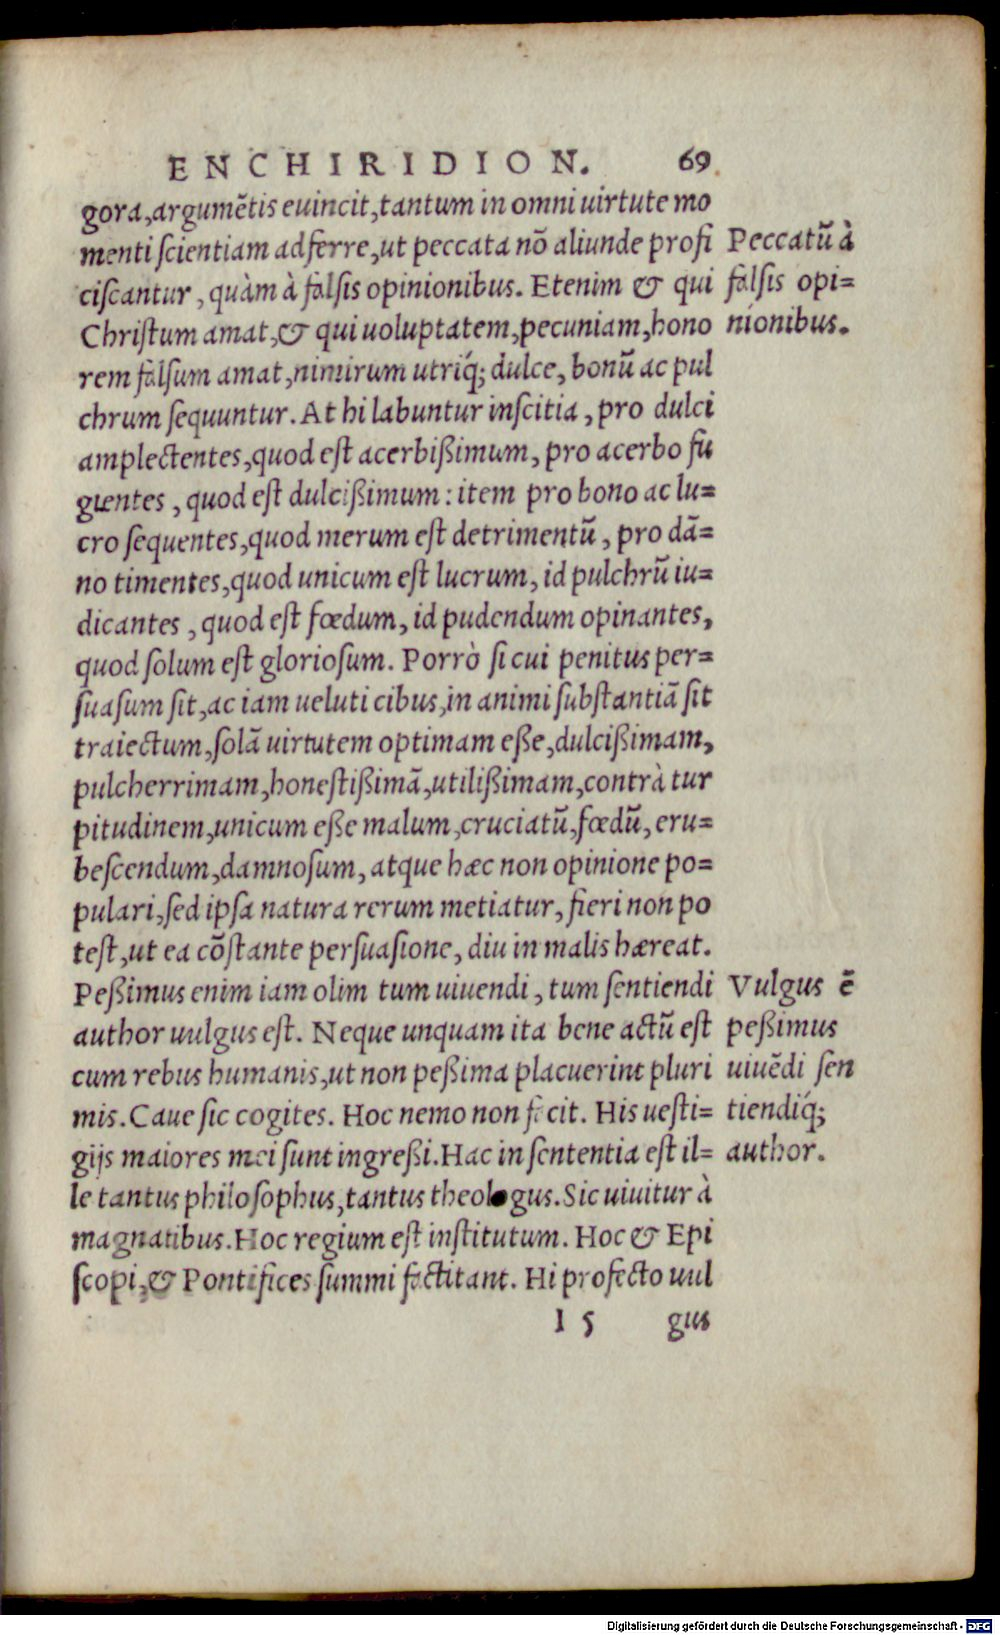 ENCHIRIDION. 69
gora, argumẽtis euincit, tantum in omni uirtute mo
menti scientiam adferre, ut peccata nõ aliunde profi
ciscantur, quàm à falsis opinionibus. Etenim & qui
Christum amat, & qui uoluptatem, pecuniam, hono
rem falsum amat, nimirum utriq́; dulce, bonũ ac pul
chrum sequuntur. At hi labuntur inscitia, pro dulci
amplectentes, quod est acerbißimum, pro acerbo fu
gientes, quod est dulcißimum: item pro bono ac lu=
cro sequentes, quod merum est detrimentũ, pro dã=
no timentes, quod unicum est lucrum, id pulchrũ iu=
dicantes, quod est fœdum, id pudendum opinantes,
quod solum est gloriosum. Porrò si cui penitus per=
suasum sit, ac iam ueluti cibus, in animi substantiã sit
traiectum, solã uirtutem optimam eße, dulcißimam,
pulcherrimam, honestißimã, utilißimam, contrà tur
pitudinem, unicum eße malum, cruciatũ, fœdũ, eru=
bescendum, damnosum, atque hæc non opinione po=
pulari, sed ipsa natura rerum metiatur, fieri non po
test, ut ea cõstante persuasione, diu in malis hæreat.
Peßimus enim iam olim tum uiuendi, tum sentiendi
author uulgus est. Neque unquam ita bene actũ est
cum rebus humanis, ut non peßima placuerint pluri
mis. Caue sic cogites. Hoc nemo non facit. His uesti=
gijs maiores mei sunt ingreßi. Hac in sententia est il=
le tantus philosophus, tantus theologus. Sic uiuitur à
magnatibus. Hoc regium est institutum. Hoc & Epi
scopi, & Pontifices summi factitant. Hi profecto uul
I 5 gus
Peccatũ à
falsis opi=
nionibus.
Vulgus ẽ
peßimus
uiuẽdi sen
tiendiq́;
author.
Digitalisierung gefördert durch die Deutsche Forschungsgemeinschaft - DFG